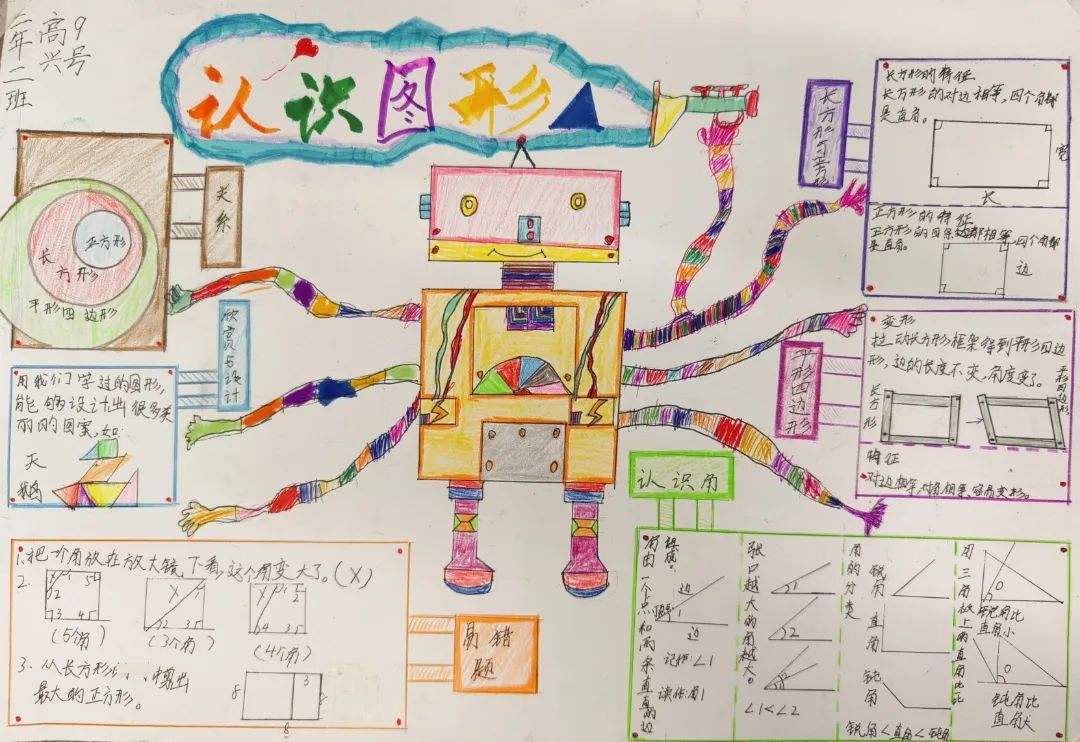 二年二班
高兴
9号
认识图形
关系
正方形
长方形
平行四边形
欣赏与设计
用我们学过的图形,
能够设计出很多美
丽的图案,如:
天
鹅
1.把一个角放在放大镜下看,这个角变大了。(X)
2.
1
5
2
3
4
5
(5个角)
X
1
2
3
(3个角)
X
1
2
4
3
(4个角)
3.从长方形
剪出
最大的正方形。
8
3
8
8
易错题
长方形与正方形
长方形的特征
长方形的对边相等,四个角都
是直角。
宽
长
正方形的特征
正方形的四条边都相等,四个角都
是直角。
边
平行四边形
变形
拉动长方形框架得到平行四边
形,边的长度不变,角度变了。
长方形
平行四边形
特征
对边相等,对角相等、容易变形。
认识角
组成:
角由一个点和两条直直的边
边
顶点
1
边
记作:∠1
读作:角1
张口越大的角越大。
1
2
∠1<∠2
角的分类
锐角
直角
钝角
锐角<直角<钝角
用三角板上的直角比比
锐角比
直角小
钝角比
直角大